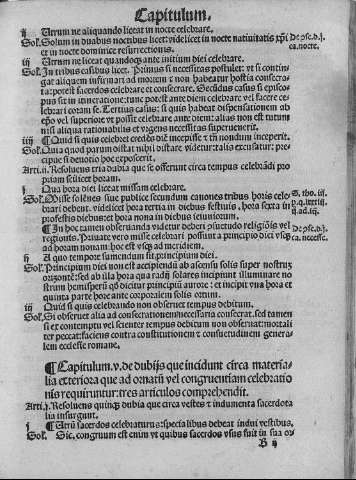 Capitulum.
ij Utrum ne aliquando liceat in nocte celebrare.
Sol. Solum in duabus noctibus licet: videlicet in nocte natiuitatis xp̄i
et in nocte dominice resurrectionis.
De ꝯse. d. j.
ca. nocte.
iij Utrum ne liceat quandoqꝫ ante initium diei celebrare.
Sol. In tribus casibus licet. Primus si necessitas postulet: vt si contin-
gat aliquem infirmari ad mortem ⁊ non habeatur hostia consecra-
ta: potest sacerdos celebrare et consecrare. Secūdus casus si episco-
pus sit in itineratione: tunc potest ante diem celebrare vel facere ce-
lebrari coram se. Tertius casus: si quis habeat dispensationem ab
ep̄o vel superiore vt possit celebrare ante diem: alias non est tutum
nisi aliqua rationabilis et vrgens necessitas superuenerit.
iiij ¶ Quid si quis celebret credēs diē incepisse ⁊ tn̄ nondum inceperit.
Sol. Quia quod parum distat nihil distare videtur: talis excusatur: pre-
cipue si deuotio hoc exposcerit.
Arti. ij. Resoluens tria dubia que se offerunt circa tempus celebrādi pro
priam scilicet horam.
j Qua hora diei liceat missam celebrare.
Sol. Misse solēnes siue publice secundum canones tribus horis cele-
brari debent. videlicet hora tertia in diebus festiuis, hora sexta in
profestis diebus: et hora nona in diebus ieiuniorum.
S. tho. iij.
p. q. lxxxiij.
ar. ij. ad. iij.
¶ In hoc tamen obseruanda videtur debere cōsuetudo religiōis vel
regionis. Priuate vero misse celebrari possunt a principio diei vsqꝫ
ad horam nonam: hoc est vsqꝫ ad meridiem.
De ꝯse. d. j.
ca. necesse.
ij A quo tempore sumendum sit principium diei
Sol. Principium diei non est accipiendū ab ascensu solis super nostrum
orizontē: sed ab illa hora qua radij solares incipiunt illuminare no
strum hemisperiū qd̄ dicitur principiū aurore: et incipit vna hora et
quinta parte hore ante corporalem solis ortum.
iij Quid si quis celebrando non obseruet tempus debitum.
Sol. Si obseruet alia ad consecrationem necessaria consecrat. sed tamen
si ex contemptu vel scienter tempus debitum non obseruat: mortali
ter peccat: faciens contra constitutionem ⁊ consuetudinem genera-
lem ecclesie romane.
¶ Capitulum. v. de dubijs que incidunt circa materia-
lia exteriora que ad ornatū vel congruentiam celebratio
nis requiruntur: tres articulos comprehendit.
Arti. j. Resoluens quinqꝫ dubia que circa vestes ⁊ indumenta sacerdota
lia insurgunt.
j ¶ Utrū sacerdos celebraturus: specialibus debeat indui vestibus.
Sol. Sic. congruum est enim vt quibus sacerdos vsus fuit in sua or-
B ij